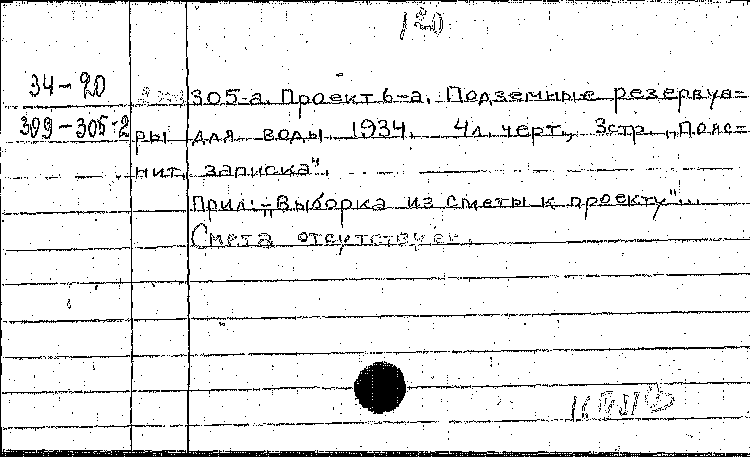 120
34-20
305-а. Проект 6-а. Подземные резервуа-
309-305-2
ры для воды 1934. 4л. черт., 3стр. „Пояс-
нит. записка".
Прил:-„Выборка из сметы к проекту"...
Смета отсутствует.